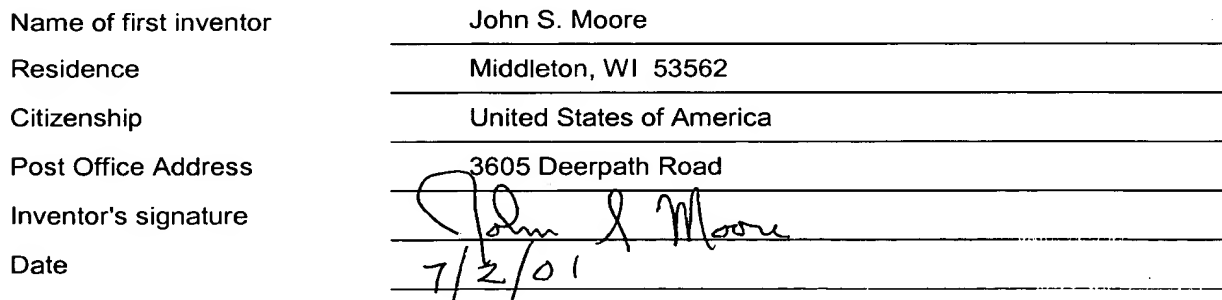 Name of first inventor John S. Moore
Residence Middleton, WI 53562
Citizenship United States of America
Post Office Address 3605 Deerpath Road
Inventor's signature John S Moore
Date 7/2/01